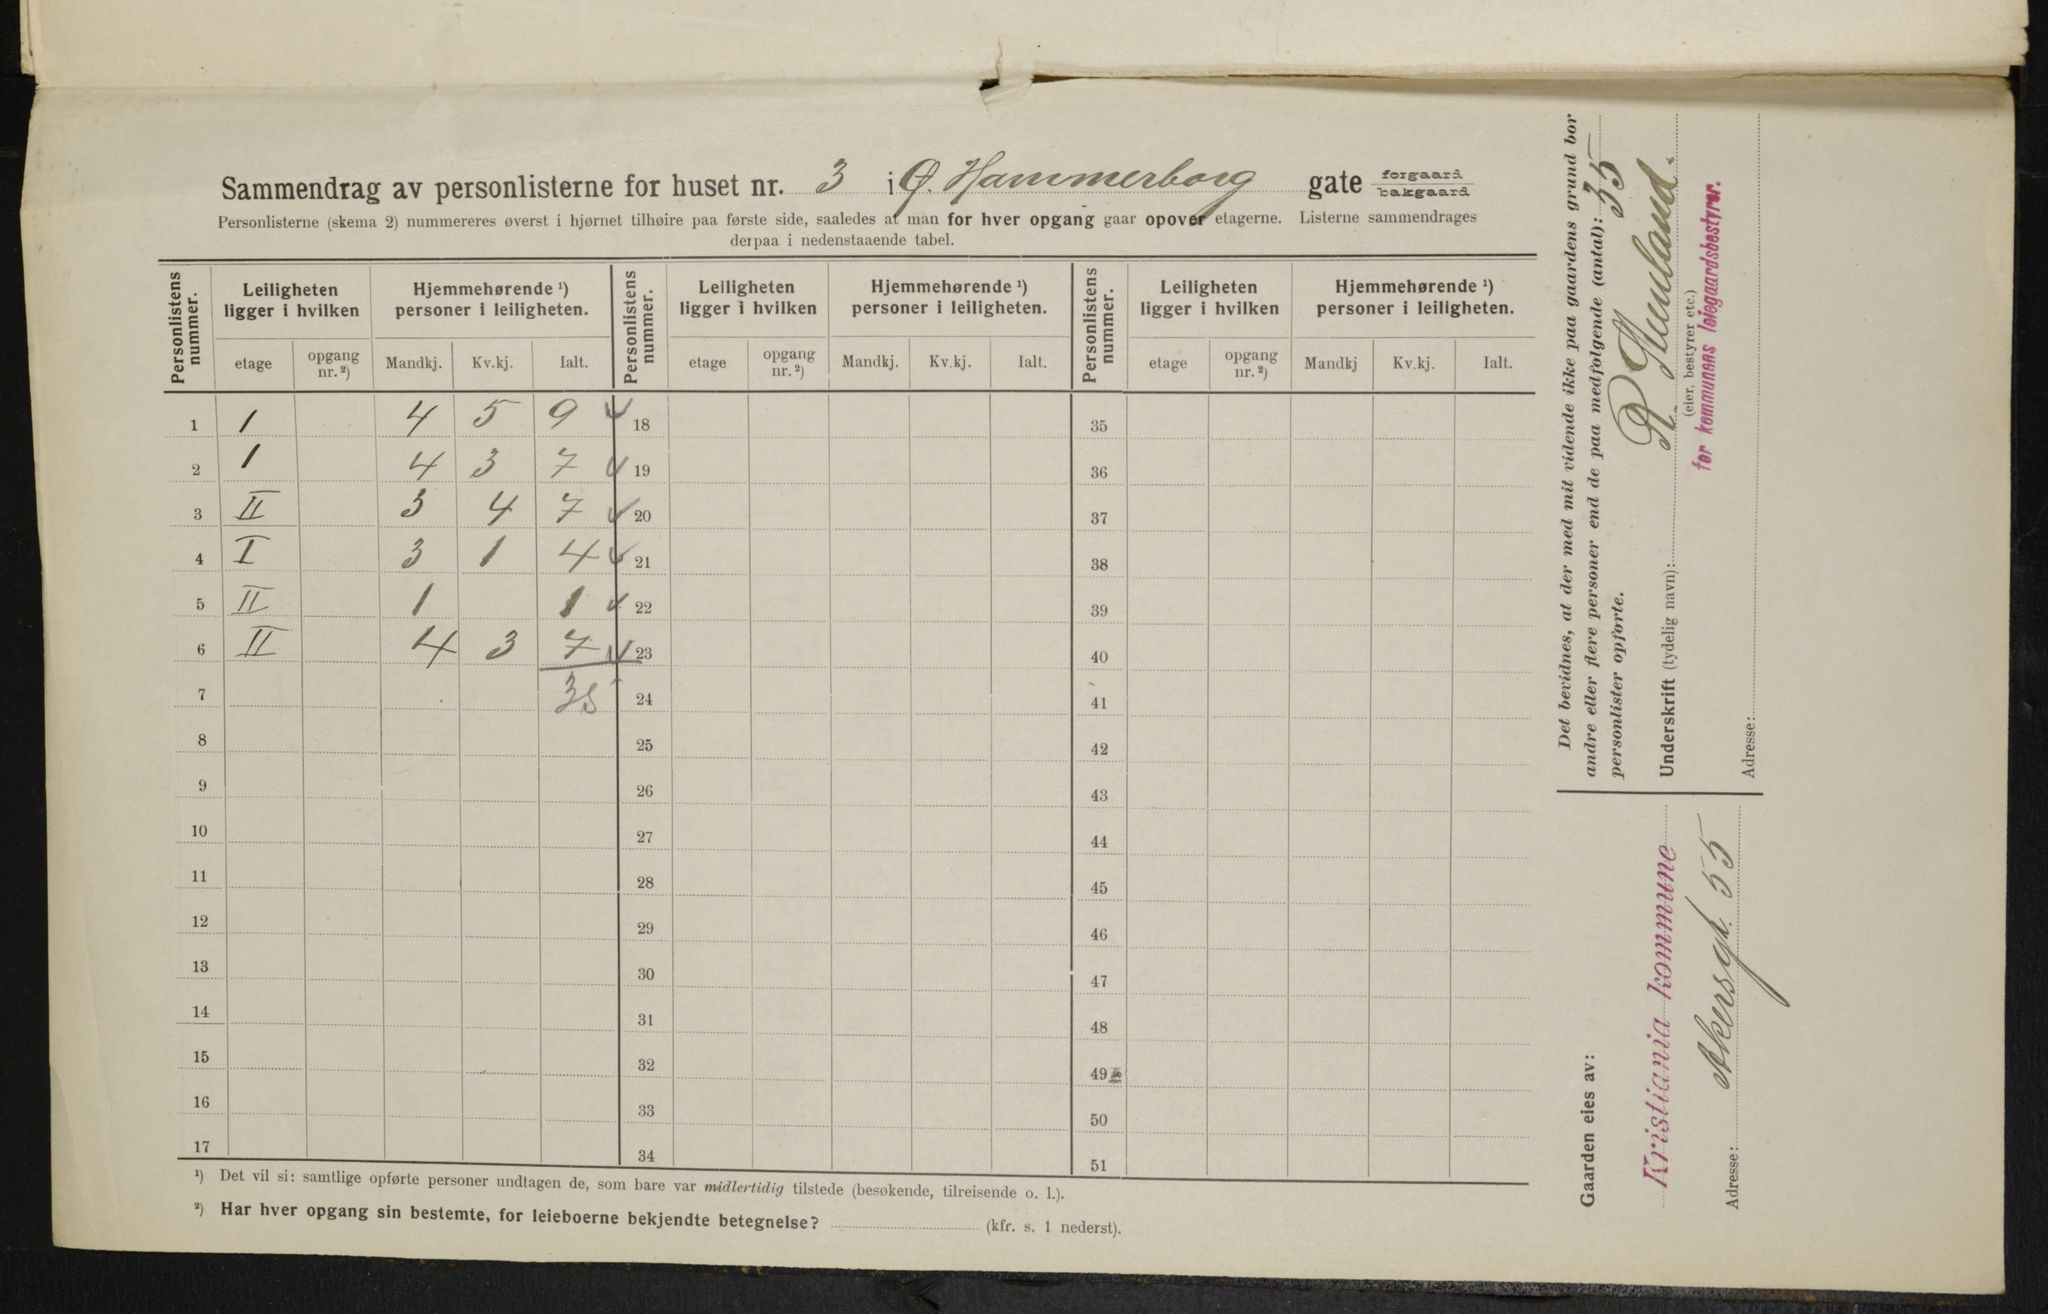 Sammendrag av personlisterne for huset nr. 3 i Ø. Hammerborg gate forgaard bakgaard
Personlisterne (skema 2) nummereres øverst i hjørnet tilhøire paa første side, saaledes at man for hver opgang gaar opover etagerne. Listerne sammendrages
derpaa i nedenstaaende tabel.
Personlistens nummer. Leiligheten ligger i hvilken Hjemmehørende ¹) personer i leiligheten. Personlistens nummer. Leiligheten ligger i hvilken Hjemmehørende ¹) personer i leiligheten. Personlistens nummer. Leiligheten ligger i hvilken Hjemmehørende ¹) personer i leiligheten.
etage opgang nr. ²) Mandkj. Kv.kj. Ialt. etage opgang nr. ²) Mandkj. Kv.kj. Ialt. etage opgang nr. ²) Mandkj Kv.kj. Ialt.
1 I 4 5 9 18 35
2 I 4 3 7 19 36
3 II 3 4 7 20 37
4 I 3 1 4 21 38
5 II 1 1 22 39
6 II 4 3 7 23 40
7 35 24 41
8 25 42
9 26 43
10 27 44
11 28 45
12 29 46
13 30 47
14 31 48
15 32 49
16 33 50
17 34 51
¹) Det vil si: samtlige opførte personer undtagen de, som bare var midlertidig tilstede (besøkende, tilreisende o. l.).
²) Har hver opgang sin bestemte, for leieboerne bekjendte betegnelse? (kfr. s. 1 nederst).
Det bevidnes, at der med mit vidende ikke paa gaardens grund bor
andre eller flere personer end de paa medfølgende (antal): 35
personlister opførte.
Underskrift (tydelig navn):
(eier, bestyrer etc.)
for kommunens leiegaardsbestyrer.
Adresse:
Gaarden eies av:
Kristiania kommune
Adresse: Akersgt. 55